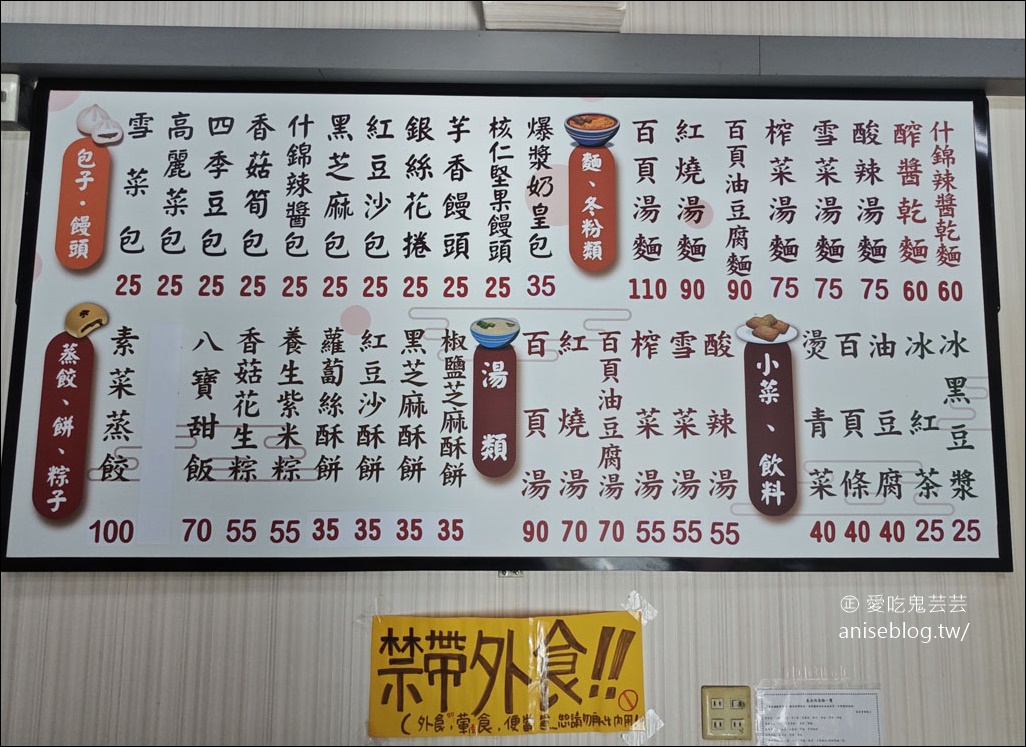 包子·饅頭
雪菜包 25
高麗菜包 25
四季豆包 25
香菇筍包 25
什錦辣醬包 25
黑芝麻包 25
紅豆沙包 25
銀絲花捲 25
芋香饅頭 25
核仁堅果饅頭 25
爆漿奶皇包 35
麵、冬粉類
百頁湯麵 110
紅燒湯麵 90
百頁油豆腐麵 90
榨菜湯麵 75
雪菜湯麵 75
酸辣湯麵 75
醡醬乾麵 60
什錦辣醬乾麵 60
蒸餃、餅、粽子
素菜蒸餃 100
八寶甜飯 70
香菇花生粽 55
養生紫米粽 55
蘿蔔絲酥餅 35
紅豆沙酥餅 35
黑芝麻酥餅 35
椒鹽芝麻酥餅 35
湯類
百頁湯 90
紅燒湯 70
百頁油豆腐湯 70
榨菜湯 55
雪菜湯 55
酸辣湯 55
小菜、飲料
燙青菜 40
百頁條 40
油豆腐 40
冰紅茶 25
冰黑豆漿 25
禁帶外食!!
(外食,葷食,便當
愛吃鬼芸芸
aniseblog.tw/